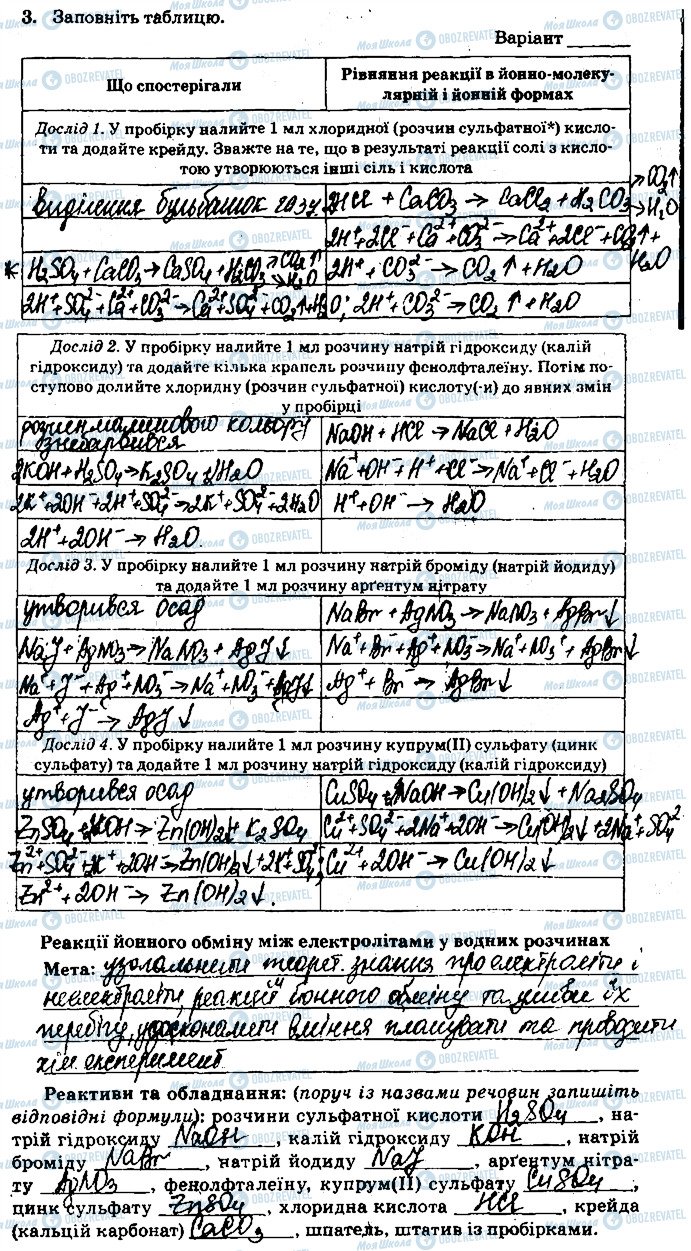 3. Заповніть таблицю.
Варіант
Що спостерігали
Рівняння реакції в йонно-молеку-
лярній і йонній формах
Дослід 1. У пробірку налийте 1 мл хлоридної (розчин сульфатної*) кисло-
ти та додайте крейду. Зважте на те, що в результаті реакції солі з кисло-
тою утворюються інші сіль і кислота
виділення бульбашок газу. 2HCl + CaCO3 → CaCl2 + H2CO3 → CO2↑ → H2O
2H⁺+2Cl⁻+Ca²⁺+CO3²⁻→Ca²⁺+2Cl⁻+CO2↑+H2O
* H2SO4+CaCO3→CaSO4+H2CO3 → CO2↑ → H2O 2H⁺+CO3²⁻→CO2↑+H2O
2H⁺+SO4²⁻+Ca²⁺+CO3²⁻→Ca²⁺+SO4²⁻+CO2↑+H2O; 2H⁺+CO3²⁻→CO2↑+H2O
Дослід 2. У пробірку налийте 1 мл розчину натрій гідроксиду (калій
гідроксиду) та додайте кілька крапель розчину фенолфталеїну. Потім по-
ступово долийте хлоридну (розчин сульфатної) кислоту(-и) до явних змін
у пробірці
розчин малинового кольору
знебарвився
NaOH + HCl → NaCl + H2O
2KOH+H2SO4→K2SO4+2H2O Na⁺+OH⁻+H⁺+Cl⁻→Na⁺+Cl⁻+H2O
2K⁺+2OH⁻+2H⁺+SO4²⁻→2K⁺+SO4²⁻+2H2O H⁺+OH⁻→H2O
2H⁺+2OH⁻→H2O.
Дослід 3. У пробірку налийте 1 мл розчину натрій броміду (натрій йодиду)
та додайте 1 мл розчину арґентум нітрату
утворився осад NaBr + AgNO3→NaNO3+AgBr↓
NaJ+AgNO3→NaNO3+AgJ↓ Na⁺+Br⁻+Ag⁺+NO3⁻→Na⁺+NO3⁺+AgBr↓
Na⁺+J⁻+Ag⁺+NO3⁻→Na⁺+NO3⁻+AgJ↓ Ag⁺+Br⁻→AgBr↓
Ag⁺+J⁻→AgJ↓
Дослід 4. У пробірку налийте 1 мл розчину купрум(II) сульфату (цинк
сульфату) та додайте 1 мл розчину натрій гідроксиду (калій гідроксиду)
утворився осад CuSO4+2NaOH→Cu(OH)2↓+Na2SO4
ZnSO4+2KOH→Zn(OH)2↓+K2SO4 Cu²⁺+SO4²⁻+2Na⁺+2OH→Cu(OH)2↓+2Na⁺+SO4²⁻
Zn²⁺+SO4²⁻+2K⁺+2OH→Zn(OH)2↓+2K⁺+SO4²⁻; Cu²⁺+2OH⁻→Cu(OH)2↓
Zn²⁺+2OH⁻→Zn(OH)2↓.
Реакції йонного обміну між електролітами у водних розчинах
Мета: узагальнити теорет. знання про електроліти і
неелектроліти, реакції йонного обміну та умови їх
перебігу, удосконалити вміння планувати та проводити
хім експеримент
Реактиви та обладнання: (поруч із назвами речовин запишіть
відповідні формули): розчини сульфатної кислоти H2SO4, на-
трій гідроксиду NaOH, калій гідроксиду KOH, натрій
броміду NaBr, натрій йодиду NaJ арґентум нітра-
ту AgNO3, фенолфталеїну, купрум(II) сульфату CuSO4,
цинк сульфату ZnSO4, хлоридна кислота HCl, крейда
(кальцій карбонат) CaCO3, шпатель, штатив із пробірками.